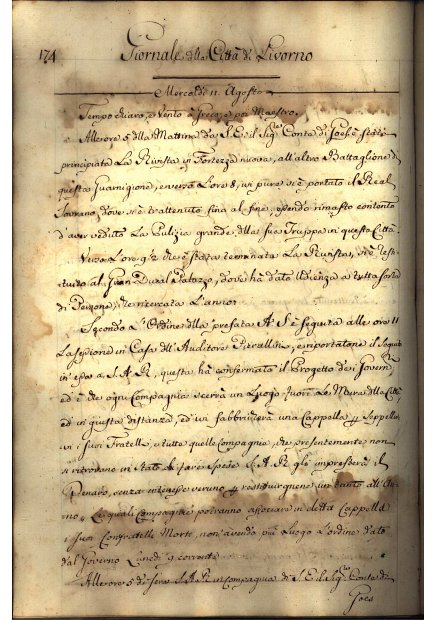 174
Giornale della Città di Livorno
Mercoledì 11. Agosto
Tempo chiaro, e Vento a Greco, e poi Maestro.
Allerore 5 della Mattina da S. E. il Sigre Conte di Goes è stata
principiata La Rivista in Fortezza nuova, all'altro Battaglione di
questa Guarnigione, e verso L'ore 8, vi pure si è portato il Real
Sovrano, dove si è trattenuto fino al fine, essendo rimasto contento
d'aver veduto La Pulizia grande della sua Truppa in questa Città
Verso L'ore 9½ che è stata terminata La Rivista, si è resti-
tuito al Gran Ducal Palazzo, dove ha dato Udienza a tutta sorte
di Persone,
Secondo L'Ordine della prefata A. S. è seguita alle ore 11
La sessione in Casa dell'Auditore e riportatone il
in essa a S. A. R., questa hà confermato il Progetto de i
ed è che ogni Compagnia scerrà un Luogo fuori Le Mura della Città
ed in giusta distanza, ed ivi fabbricherà una Cappella p Seppellir-
vi i suoi Fratelli, e tutte quelle Compagnie, che presentemente non
si ritrovano in stato di fare spese S. A. R. gli impresterà il
Denaro, senza interesse veruno p restituirgnene un tanto all'An-
no, Le quali Compagnie potranno associare in detta Cappella
i suoi Confratelli Morti, non avendo più Luogo L'ordine dato
dal Governo Lunedì 9 corrente
Allerore 5 di sera S. A. R. in Compagnia di S. E. il Sigre Conte di
Goes